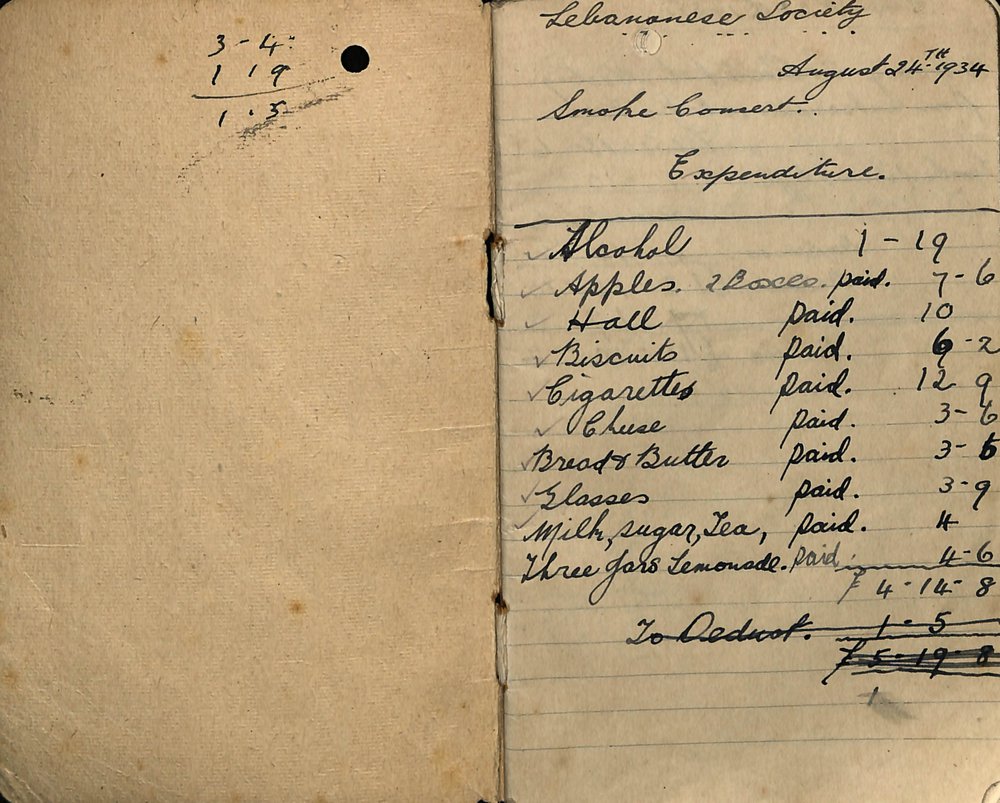 3 - 4
1 19
1 . 5
Lebanonese Society
August 24TH 1934
Smoke Concert.
Expenditure.
Alcohol 1 - 19
Apples. 2 Boxes. paid. 7 - 6
Hall paid. 10
Biscuits paid. 6 - 2
Cigarettes paid. 12 9
Cheese paid. 3 - 6
Bread & Butter paid. 3 - 6
Glasses paid. 3 - 9
Milk, sugar, Tea, paid. 4
Three Jars Lemonade. paid. 4 - 6
£ 4 - 14 - 8
To Deduct. 1 - 5
£ 5 - 19 - 8
1